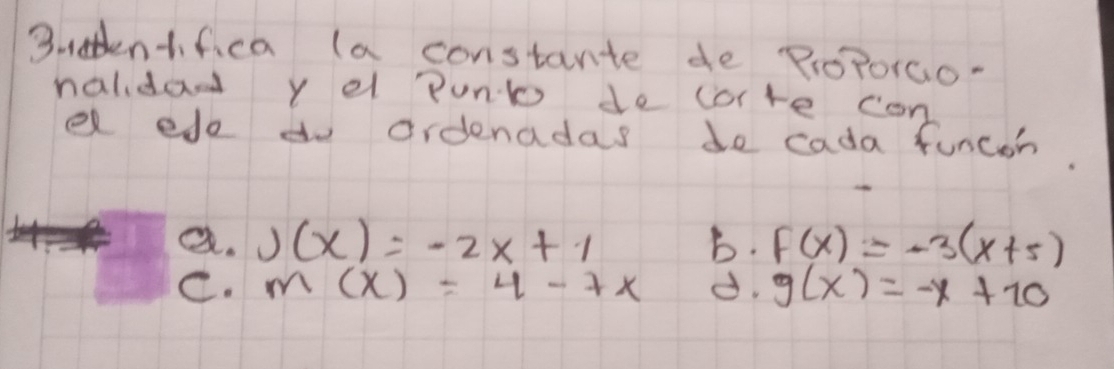 3. identifica la constante de Proporcio-
nalidad y el Punto de corte con
el eje de ordenadas de cada funcón.
a. J(x) = -2x + 1 b. F(x) = -3(x+5)
c. m(x) = 4 - 7x d. g(x) = -x + 10